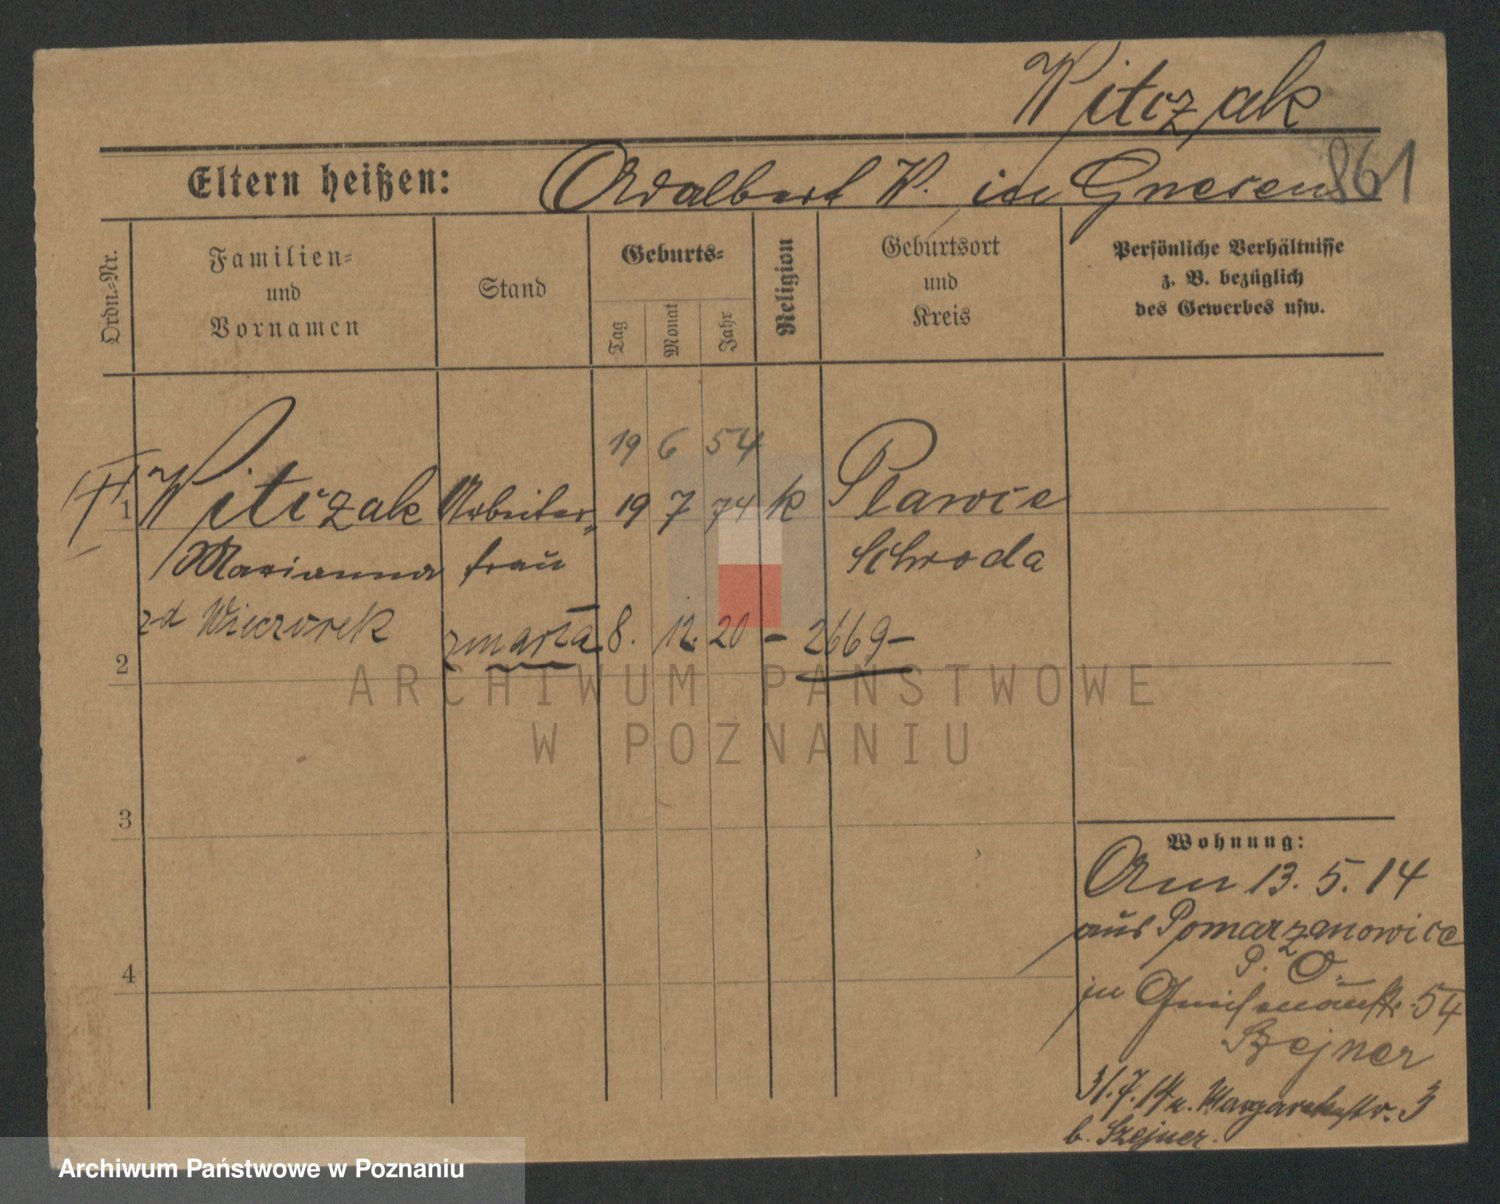 Witczak
861
Eltern heißen: Adalbert W. in Gnesen
Ordn.-Nr.
Familien-
und
Vornamen
Stand
Geburts-
Tag
Monat
Jahr
Religion
Geburtsort
und
Kreis
Persönliche Verhältnisse
z. B. bezüglich
des Gewerbes usw.
19 6 54
1 Witczak Arbeiter- 19 7 74 k Plawce
Marianna frau Schroda
zd Wieczorek zmarła 8. 12. 20 - 2669-
2
ARCHIWUM PAŃSTWOWE
W POZNANIU
3
Wohnung:
Am 13. 5. 14
aus Pomarzanowice
P. O.
4
in Gneisenaustr. 54
Szejner
31.7.14 n. Margarethenstr. 3
b. Szejner.
Archiwum Państwowe w Poznaniu